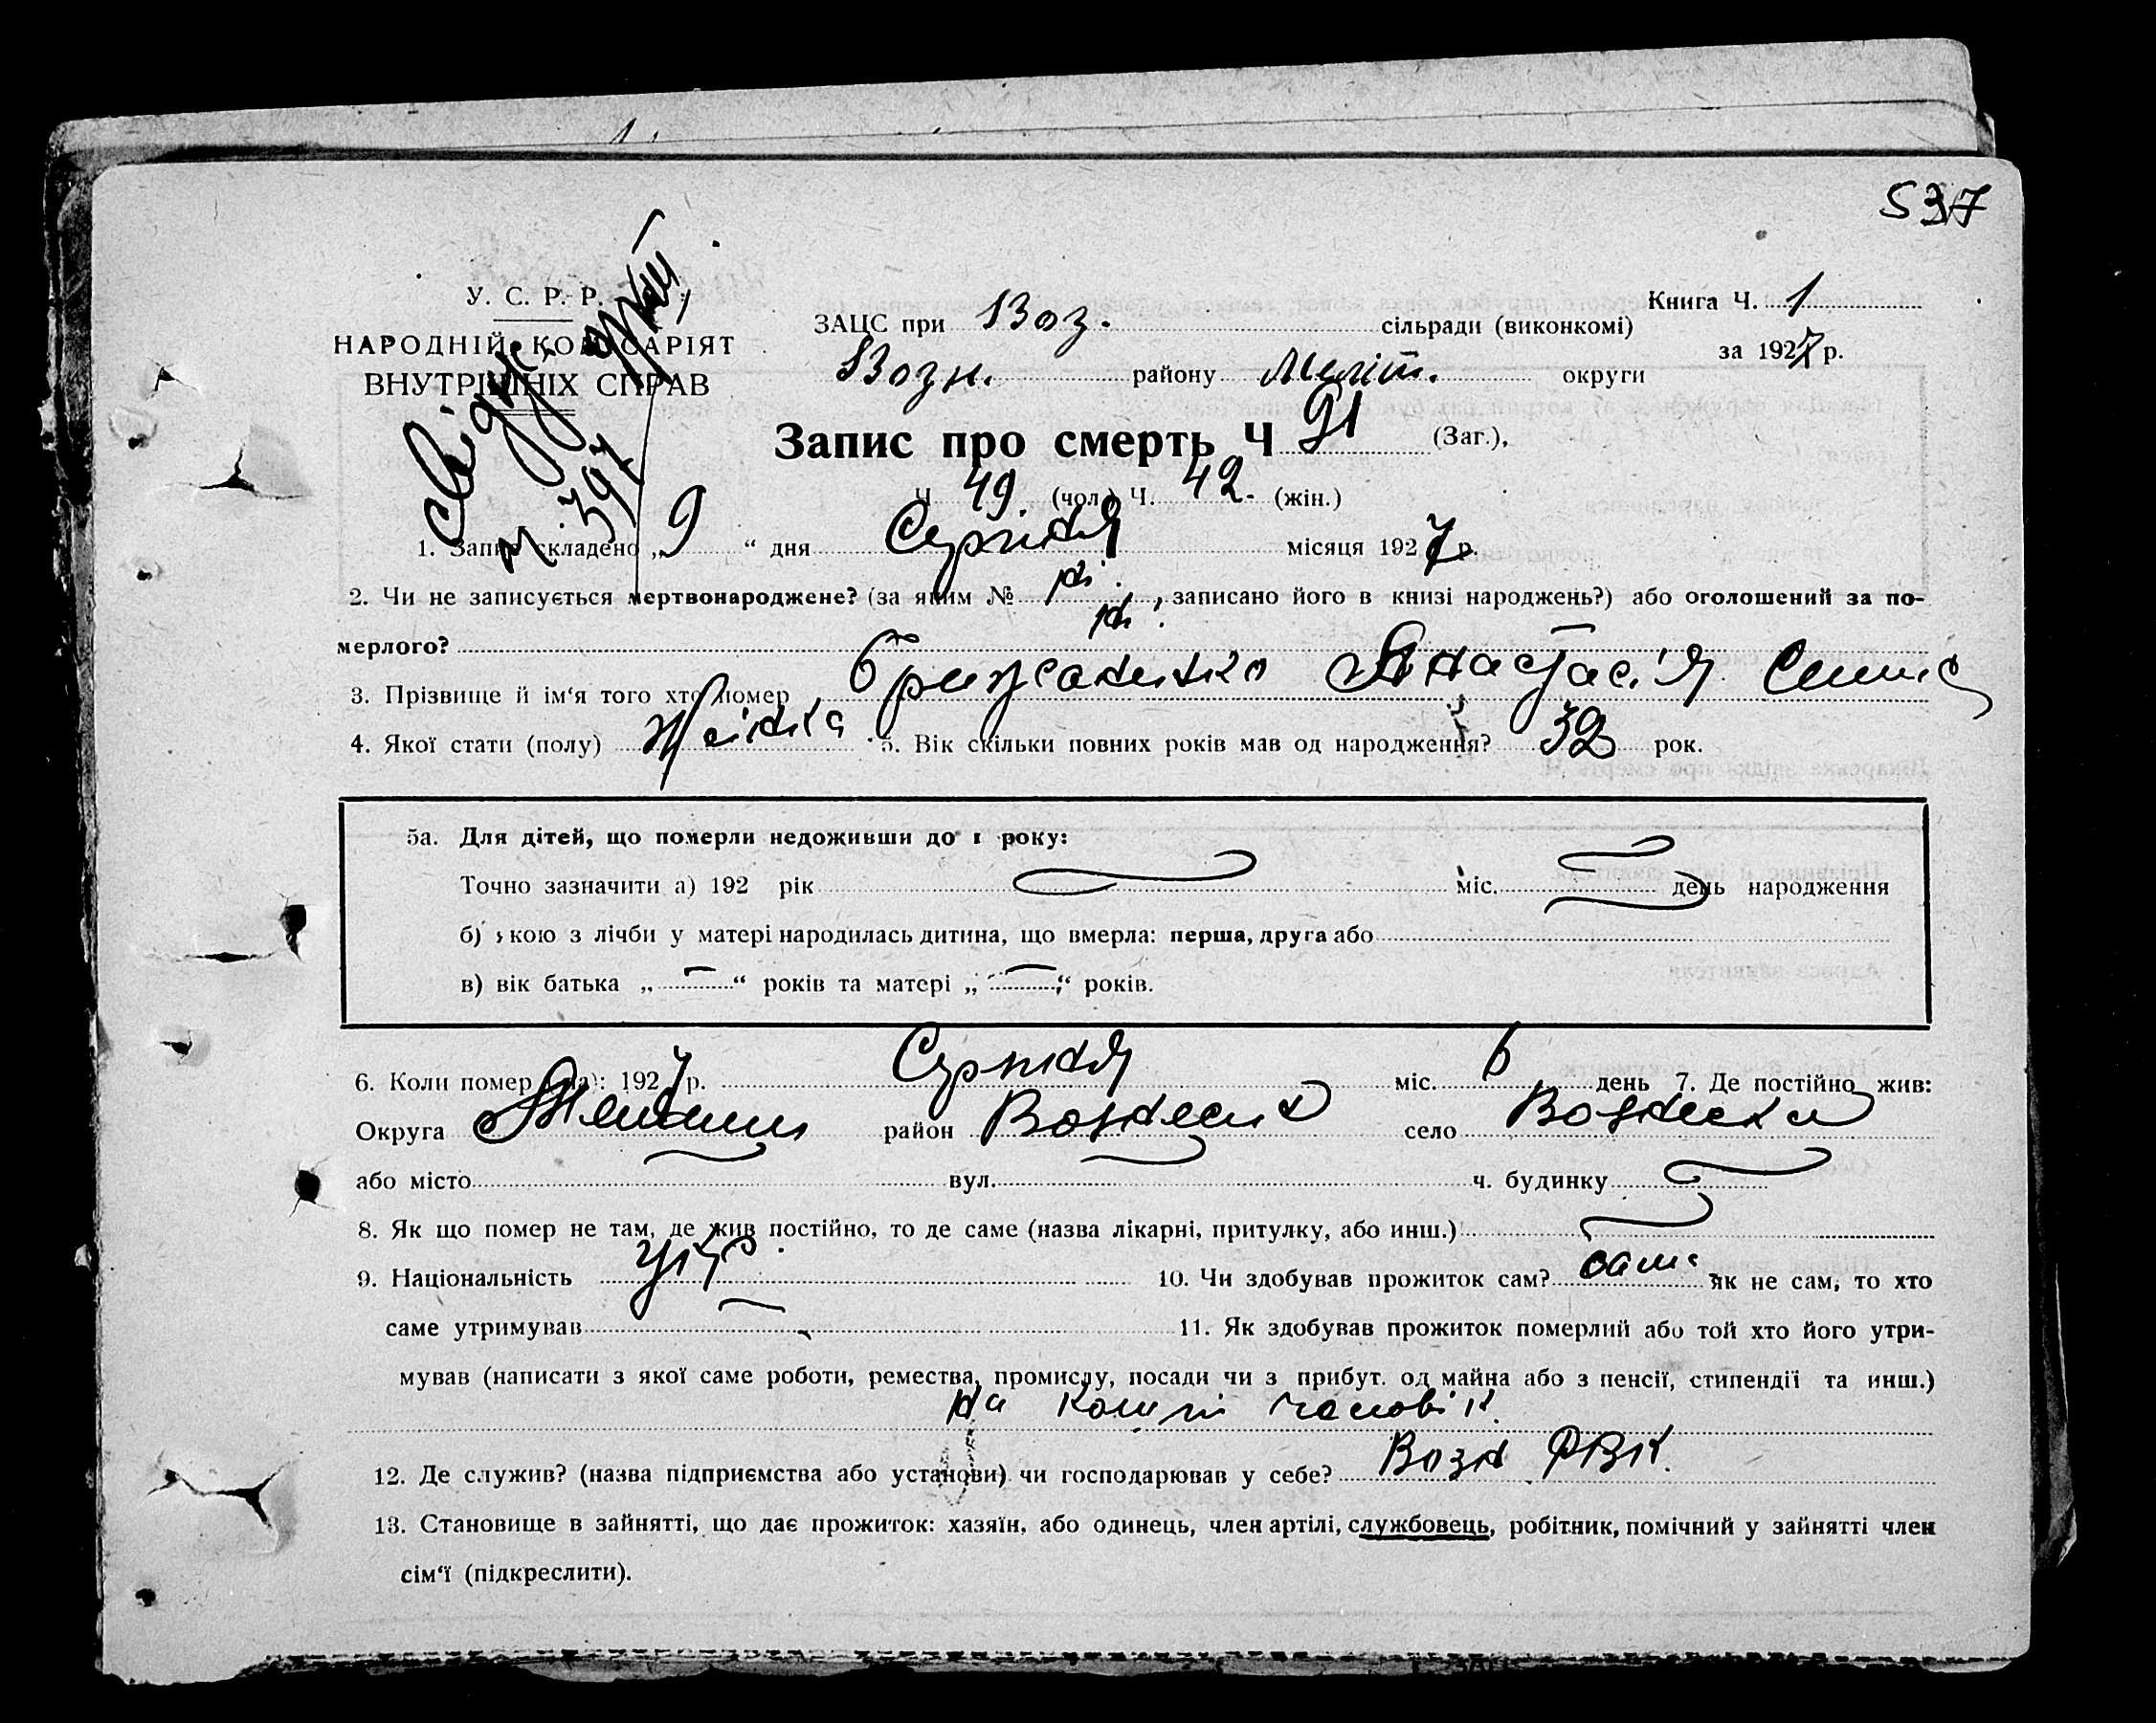 537
У. С. Р. Р.
НАРОДНІЙ КОМІСАРІЯТ
ВНУТРІШНІХ СПРАВ
Книга Ч. 1
за 1927 р.
ЗАЦС при Воз. сільради (виконкомі)
Возн. району Меліт. округи
Запис про смерть Ч 91 (Заг.),
Ч 49 (чол.) Ч. 42 (жін.)
1. Запис складено „ 9 “ дня Серпня місяця 1927 р.
2. Чи не записується мертвонароджене? (за яким № ні, записано його в книзі народжень?) або оголошений за по-
мерлого? ні
3. Прізвище й ім‘я того хто помер Брижаненко Анастасія
4. Якої стати (полу) Жінка 5. Вік скільки повних років мав од народження? 32 рок.
5а. Для дітей, що померли недоживши до 1 року:
Точно зазначити а) 192 рік міс. день народження
б) якою з лічби у матері народилась дитина, що вмерла: перша, друга або
в) вік батька „ — “ років та матері „ — “ років.
6. Коли помер (ла): 1927 р. Серпня міс. 6 день 7. Де постійно жив:
Округа район Вознесен село
або місто вул. ч. будинку
8. Як що помер не там, де жив постійно, то де саме (назва лікарні, притулку, або инш.)
9. Національність укр 10. Чи здобував прожиток сам? сама як не сам, то хто
саме утримував — 11. Як здобував прожиток померлий або той хто його утри-
мував (написати з якої саме роботи, ремества, промислу, посади чи з прибут. од майна або з пенсії, стипендії та инш.)
на кошт чоловік
12. Де служив? (назва підприємства або установи) чи господарював у себе? Возн РВК.
13. Становище в зайнятті, що дає прожиток: хазяїн, або одинець, член артілі, службовець, робітник, помічний у зайнятті член
сім‘ї (підкреслити).